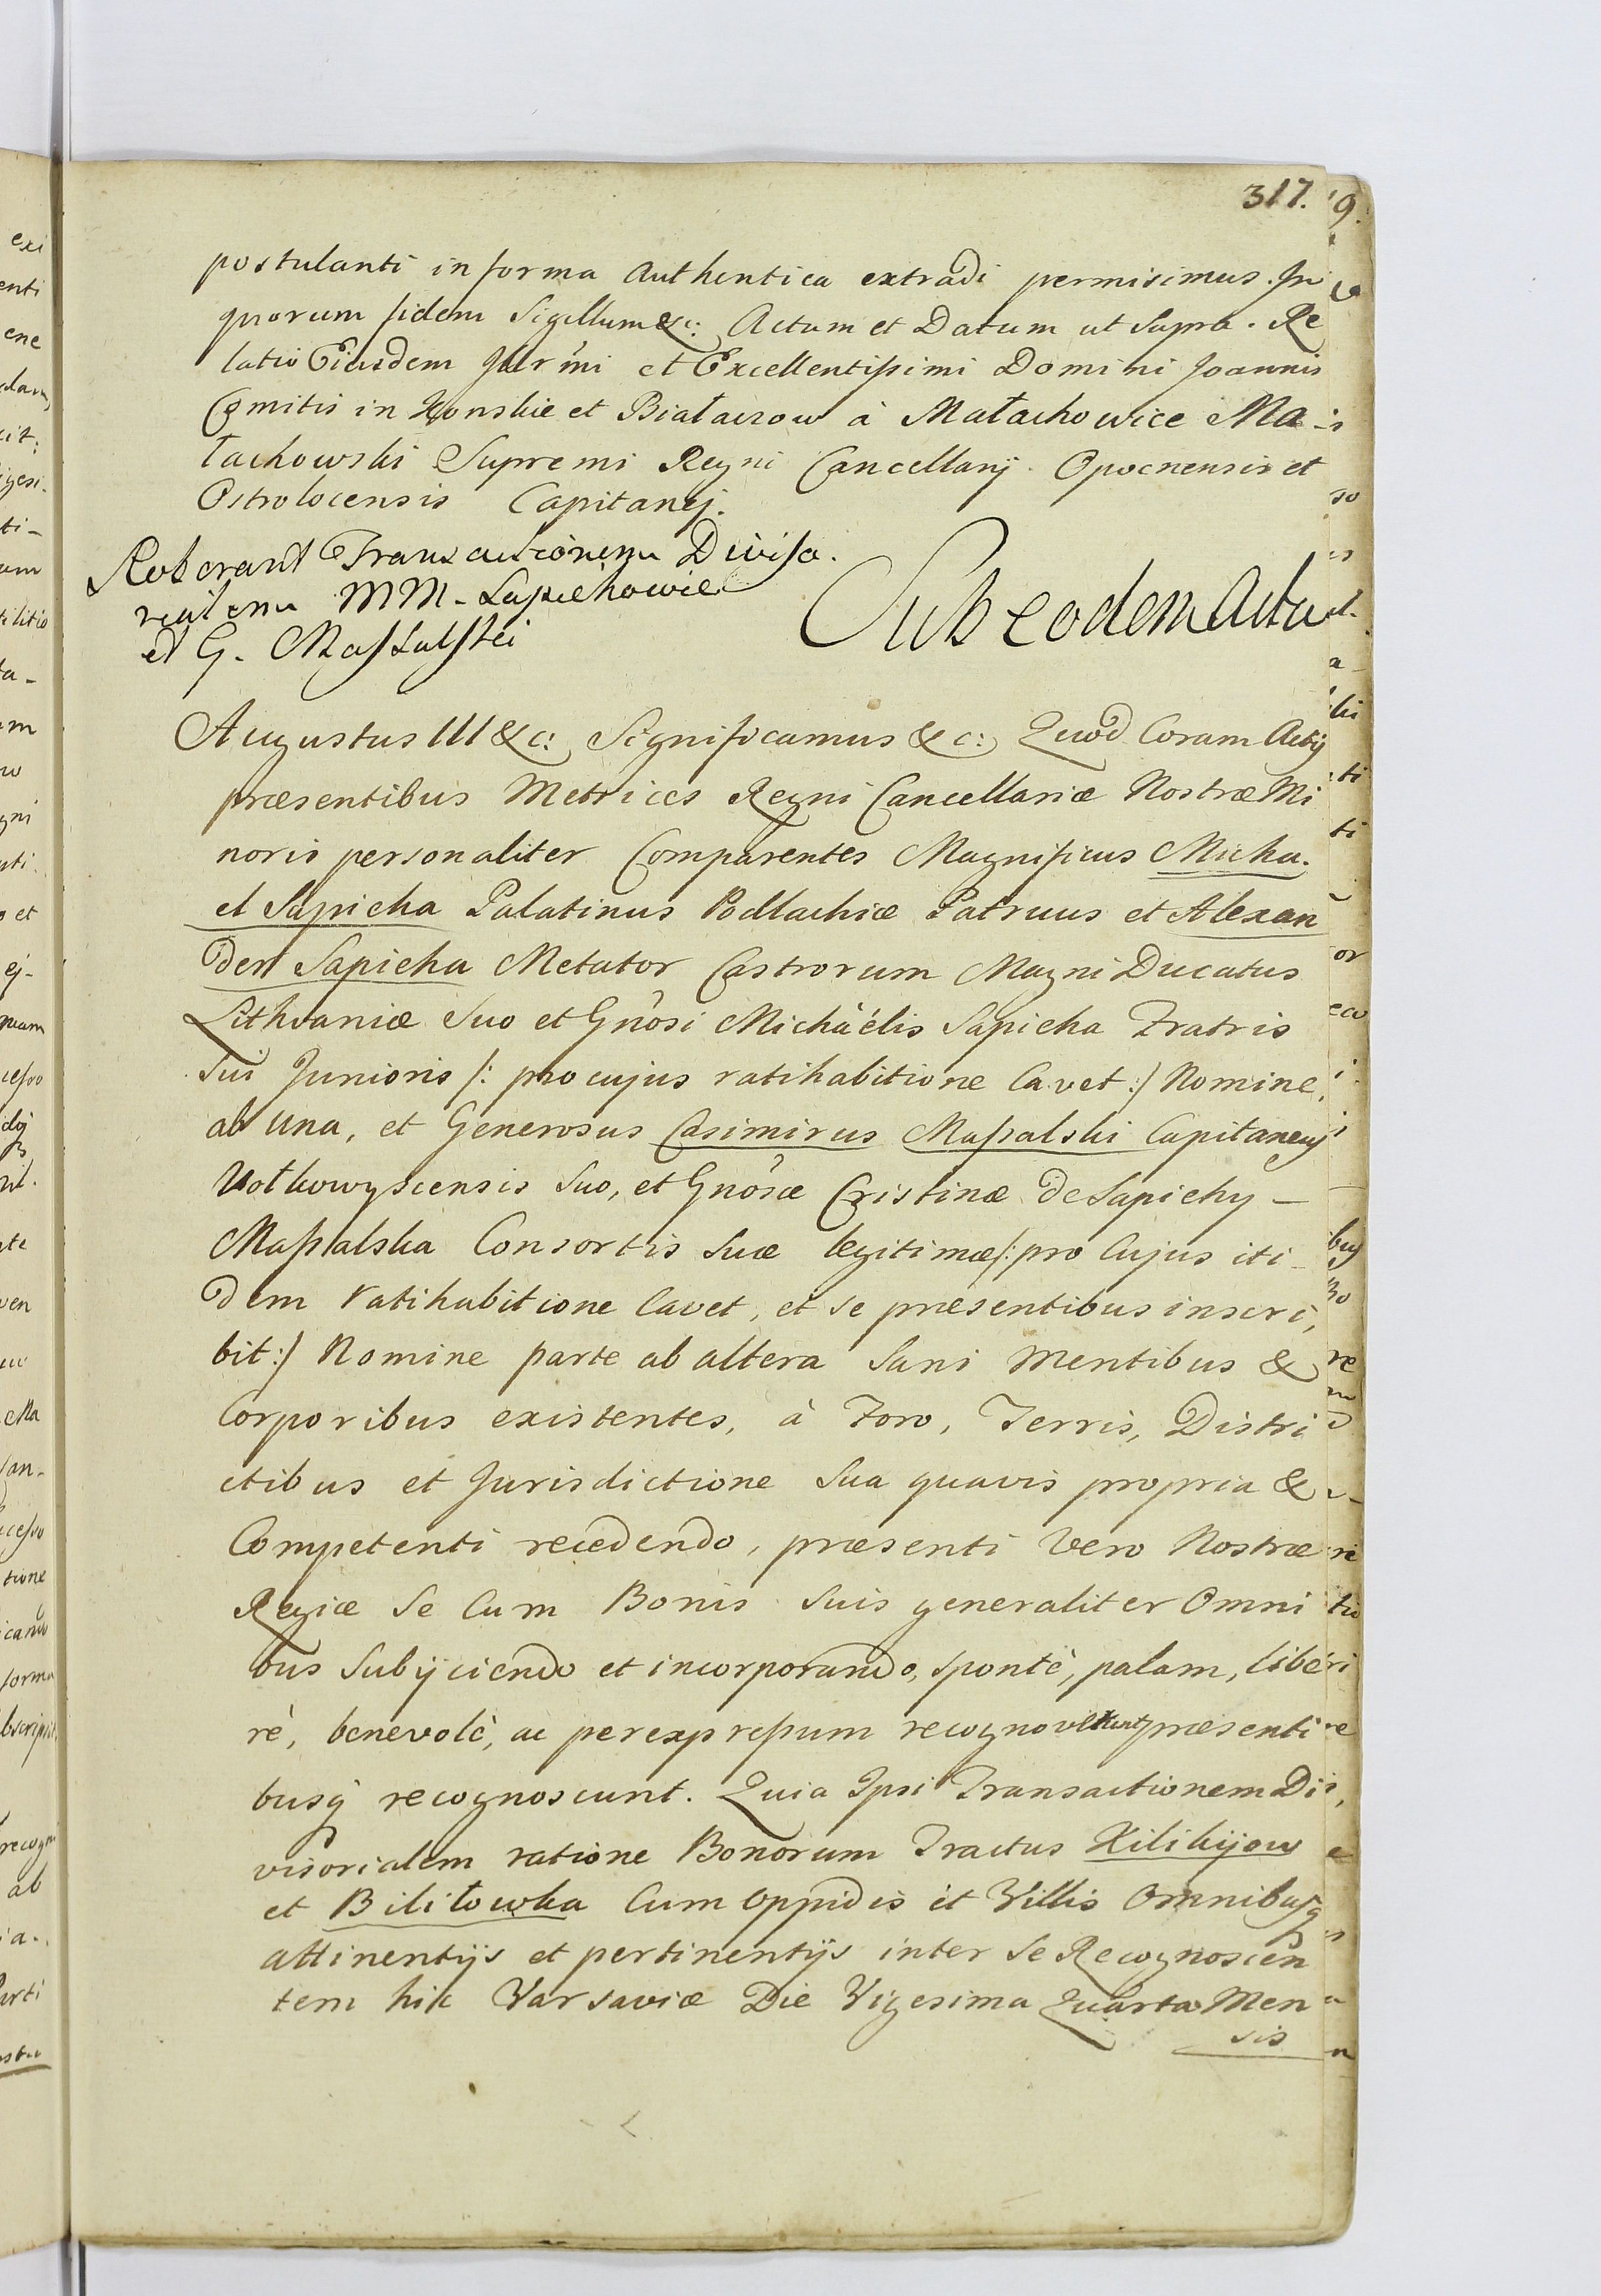 317.
postulanti in forma Authentica extradi permisimus. In
quorum fidem Sigillum &c: Actum et Datum ut Supra. Re
latio Eiusdem Illrmi et Excellentissimi Domini Joannis
Comitis in Konskie et Białaczow à Małachowice Ma
łachowski Supremi Regni Cancellarij. Opocnensis et
Ostrolocensis Capitanej.
Roborant Transactionem Diviso.
rialem MM. Sapiehowie
et G. Massalski
Sub eodem Actu
Augustus III &c: Significamus &c: Quod Coram Actis
præsentibus Metrices Regni Cancellariæ Nostræ Mi
noris personaliter Comparentes Magnificus Micha.
el Sapieha Palatinus Podlachiæ Patruus et Alexan
der Sapieha Metator Castrorum Magni Ducatus
Lithvaniæ Suo et Gnosi Michäélis Sapieha Fratris
Sui Junioris /: pro cujus ratihabitione Cavet :/ Nomine,
ab una, et Generosus Casimirus Massalski Capitaneus
Wołkowyscensis Suo, et Gnosæ Cristinæ de Sapiehy –
Massalska Consortis Suæ legitimæ /: pro Cujus iti–
dem ratihabitione Cavet, et se præsentibus inscri,
bit :/ Nomine parte ab altera Sani Mentibus &
Corporibus existentes, à Foro, Terris, Distri
ctibus et Jurisdictione Sua quavis propria &
Competenti recedendo, præsenti Vero Nostræ
Regiæ Se Cum Bonis Suis generaliter Omni
bus Subijciendo et incorporando, sponte, palam, libe
rè, benevolè, ac per expressum recognoverunt præsenti
busq recognoscunt. Quia Ipsi Transactionem Di
visorialem ratione Bonorum Tractus Kilikijow
et Biliłowka Cum Oppidis et Villis Omnibusq
attinentijs et pertinentijs inter Se Recognoscen
tem hic Varsaviæ Die Vigesima Quarta Men
sis